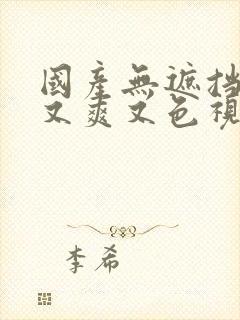 國產無遮挡
又爽又色視
李希